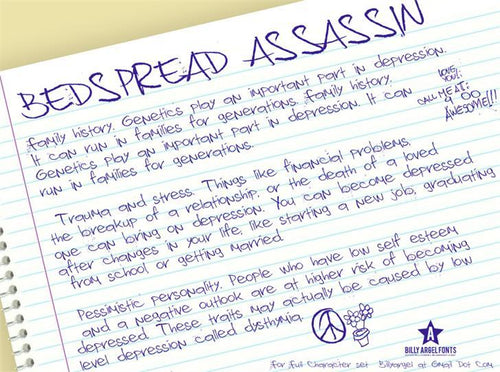 BEDSPREAD ASSASSIN
Family history. Genetics play an important part in depression.
It can run in families for generations. Family history.
Genetics play an important part in depression. It can
run in families for generations.
LOVE
YOU!
CALL ME AT:
AWESOME!!!
Trauma and stress. Things like financial problems,
the breakup of a relationship, or the death of a loved
one can bring on depression. You can become depressed
after changes in your life, like starting a new job, graduating
from school or getting married.
Pessimistic personality. People who have low self esteem
and a negative outlook are at higher risk of becoming
depressed. These traits may actually be caused by low
level depression called dysthymia.
A
BILLY ARGEL FONTS
For full Character set Billyargel at Gmail Dot Com